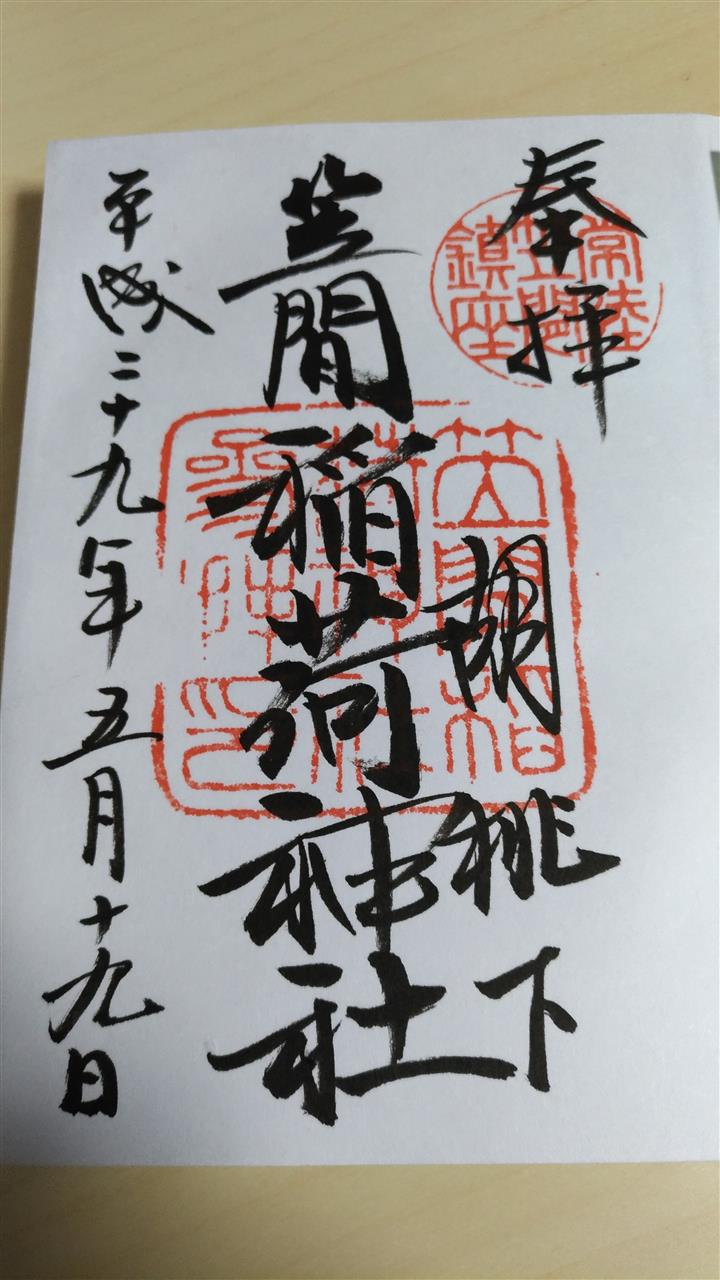 奉拝
常陸
笠間
鎮座
胡桃下
笠間稲荷神社
笠間稲
荷神社
參拝印
平成二十九年五月十九日